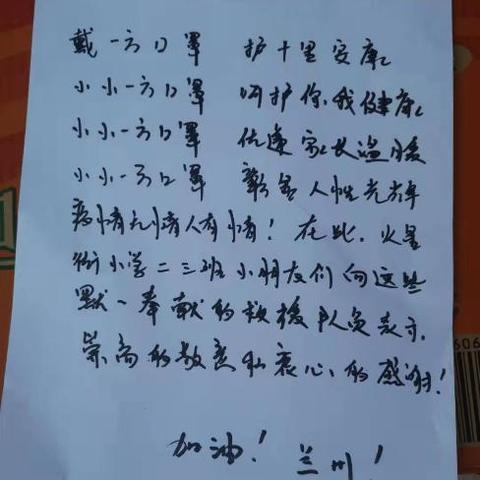 戴一方口罩 护十里安康
小小一方口罩 呵护你我健康
小小一方口罩 传递家长温暖
小小一方口罩 彰显人性光辉
疫情无情人有情！在此，火星
街小学二三班小朋友们向这些
默默奉献的救援队员表示
崇高的敬意和衷心的感谢！
加油！兰州！
606